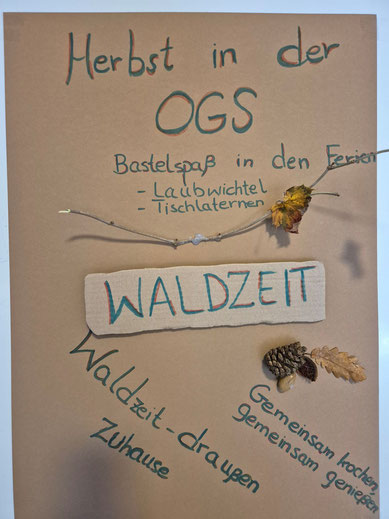 Herbst in der
OGS
Bastelspaß in den Ferien
- Laubwichtel
- Tischlaternen
WALDZEIT
Waldzeit-draußen
Zuhause
Gemeinsam kochen,
gemeinsam genießen